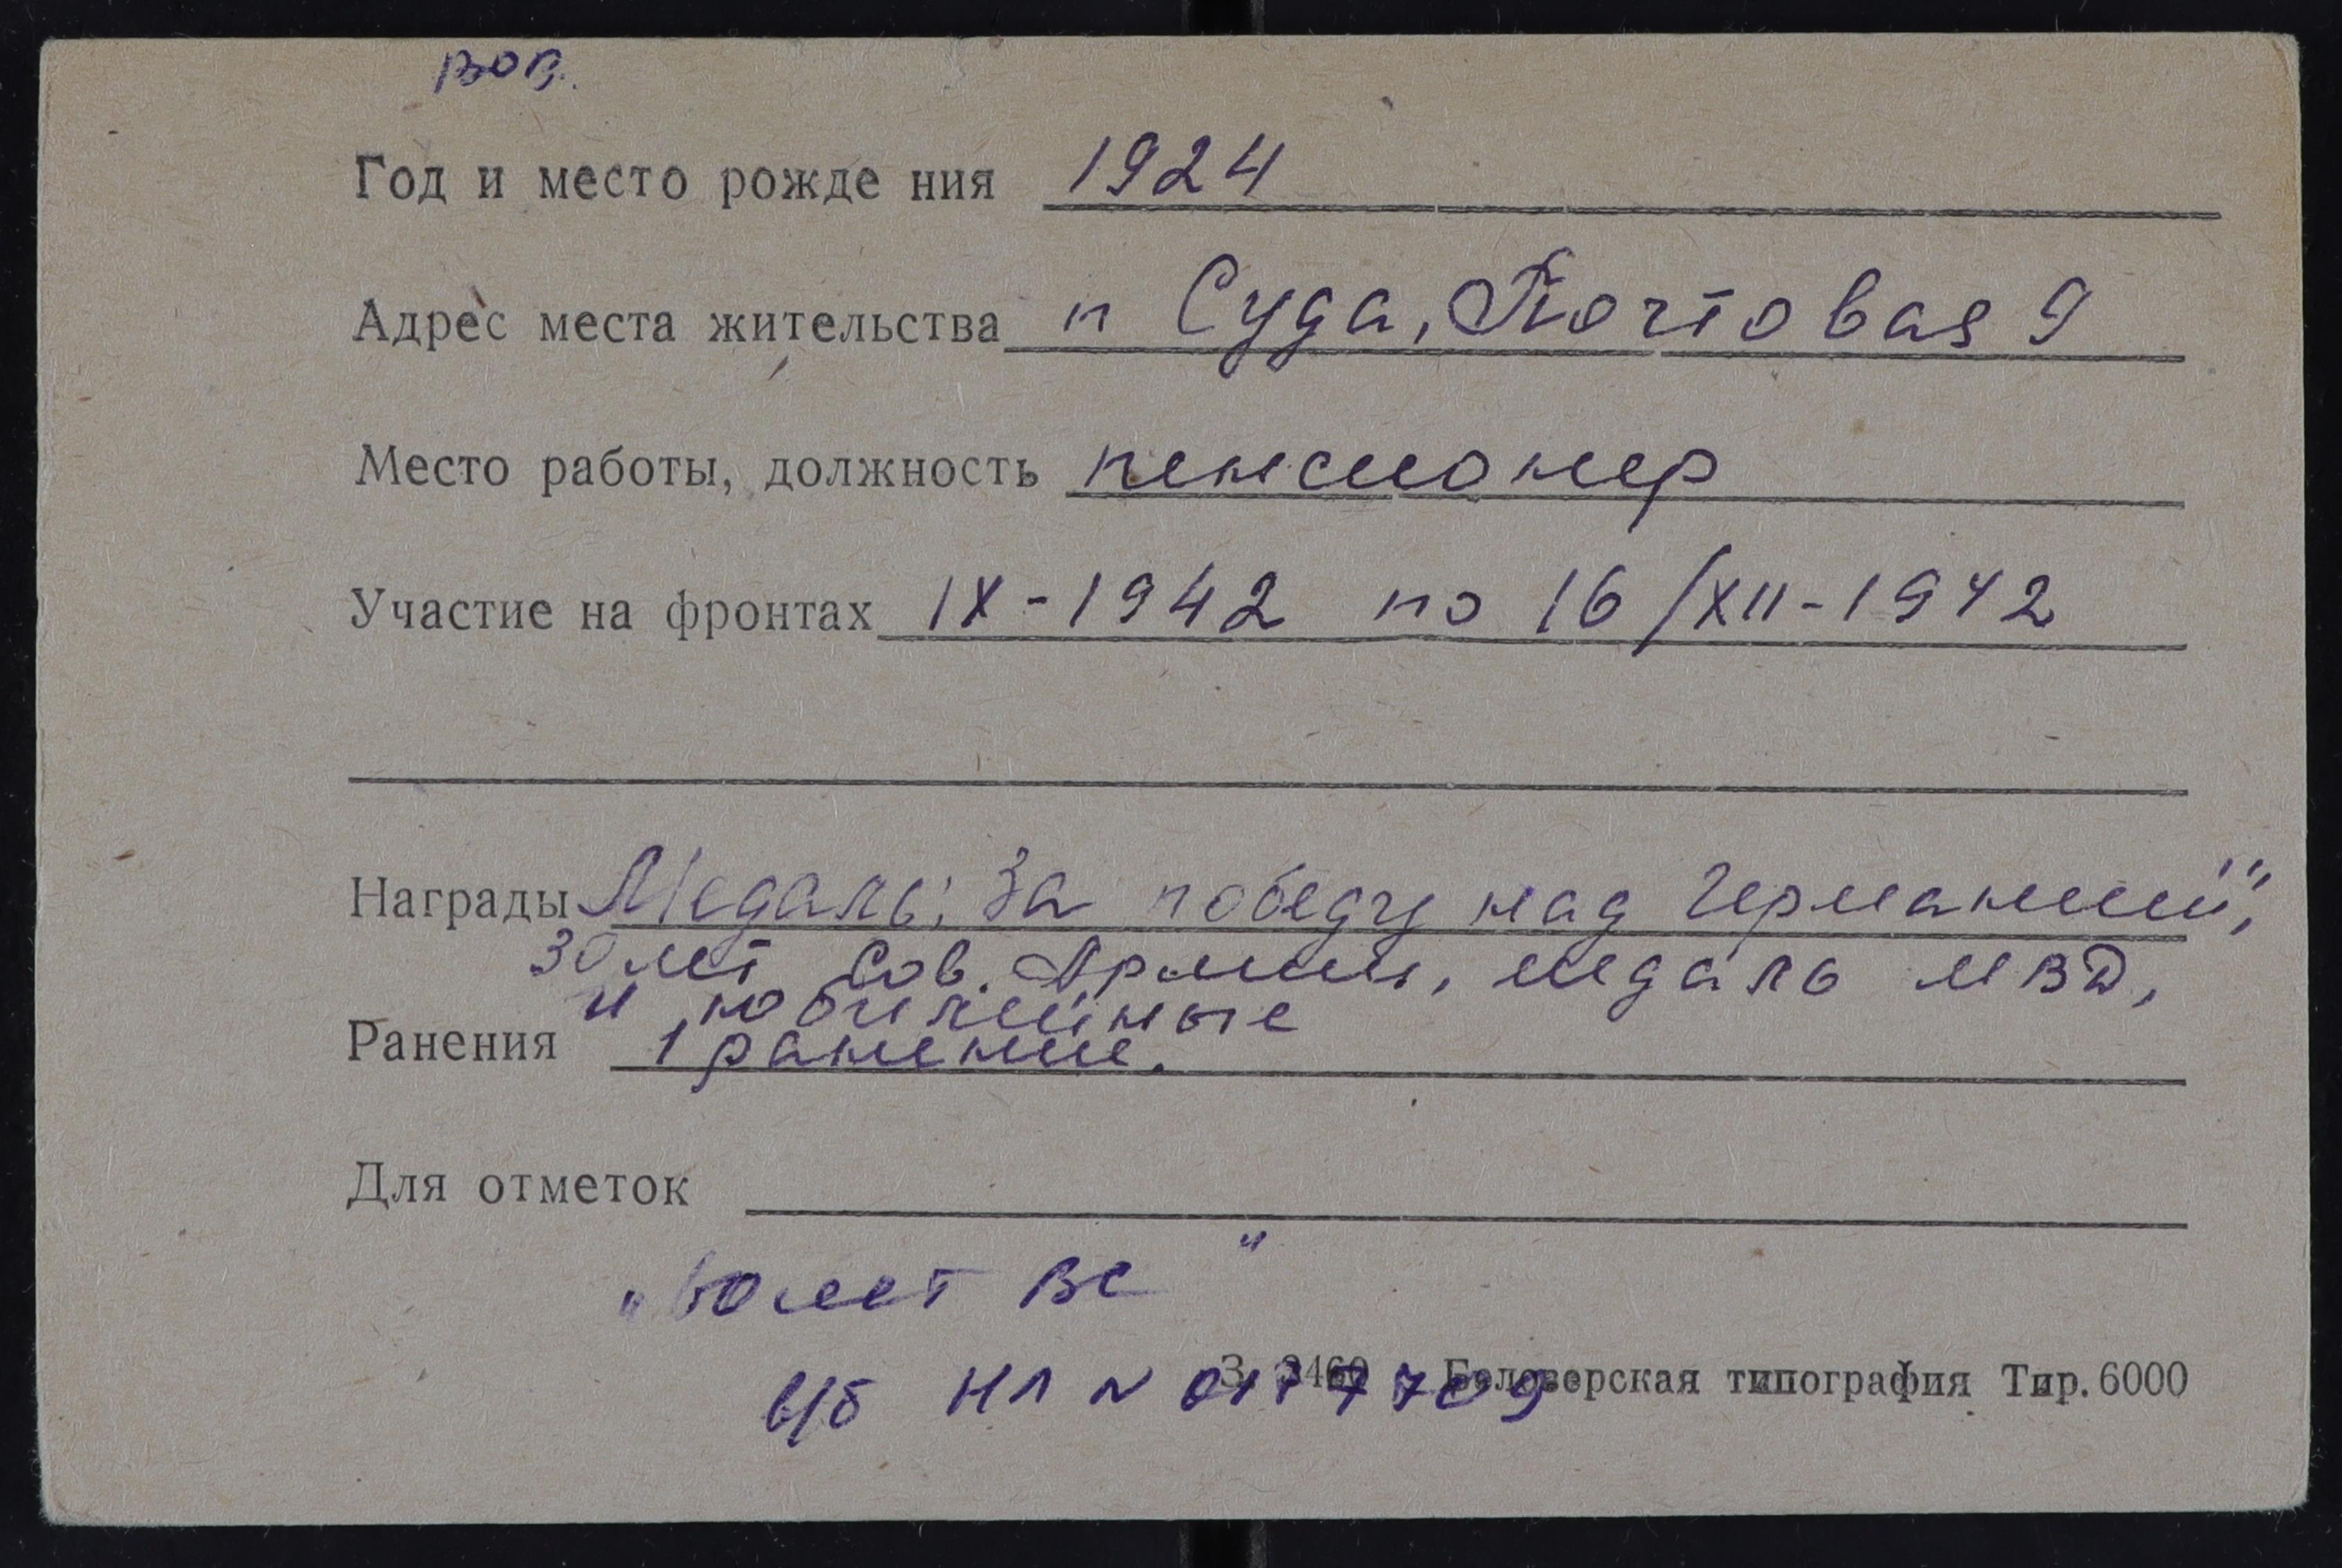 ВОВ.
Год и место рожде ния 1924
Адрес места жительства п Суда, Почтовая 9
Место работы, должность пенсионер
Участие на фронтах IX - 1942 по 16/XII - 1942
Награды Медаль: За победу над Германией",
30 лет Сов. Армии, медаль МВД,
и юбилейные
Ранения 1 ранение.
Для отметок
лет ВС "
З. Белозерская типография Тир. 6000
У/б НЛ N